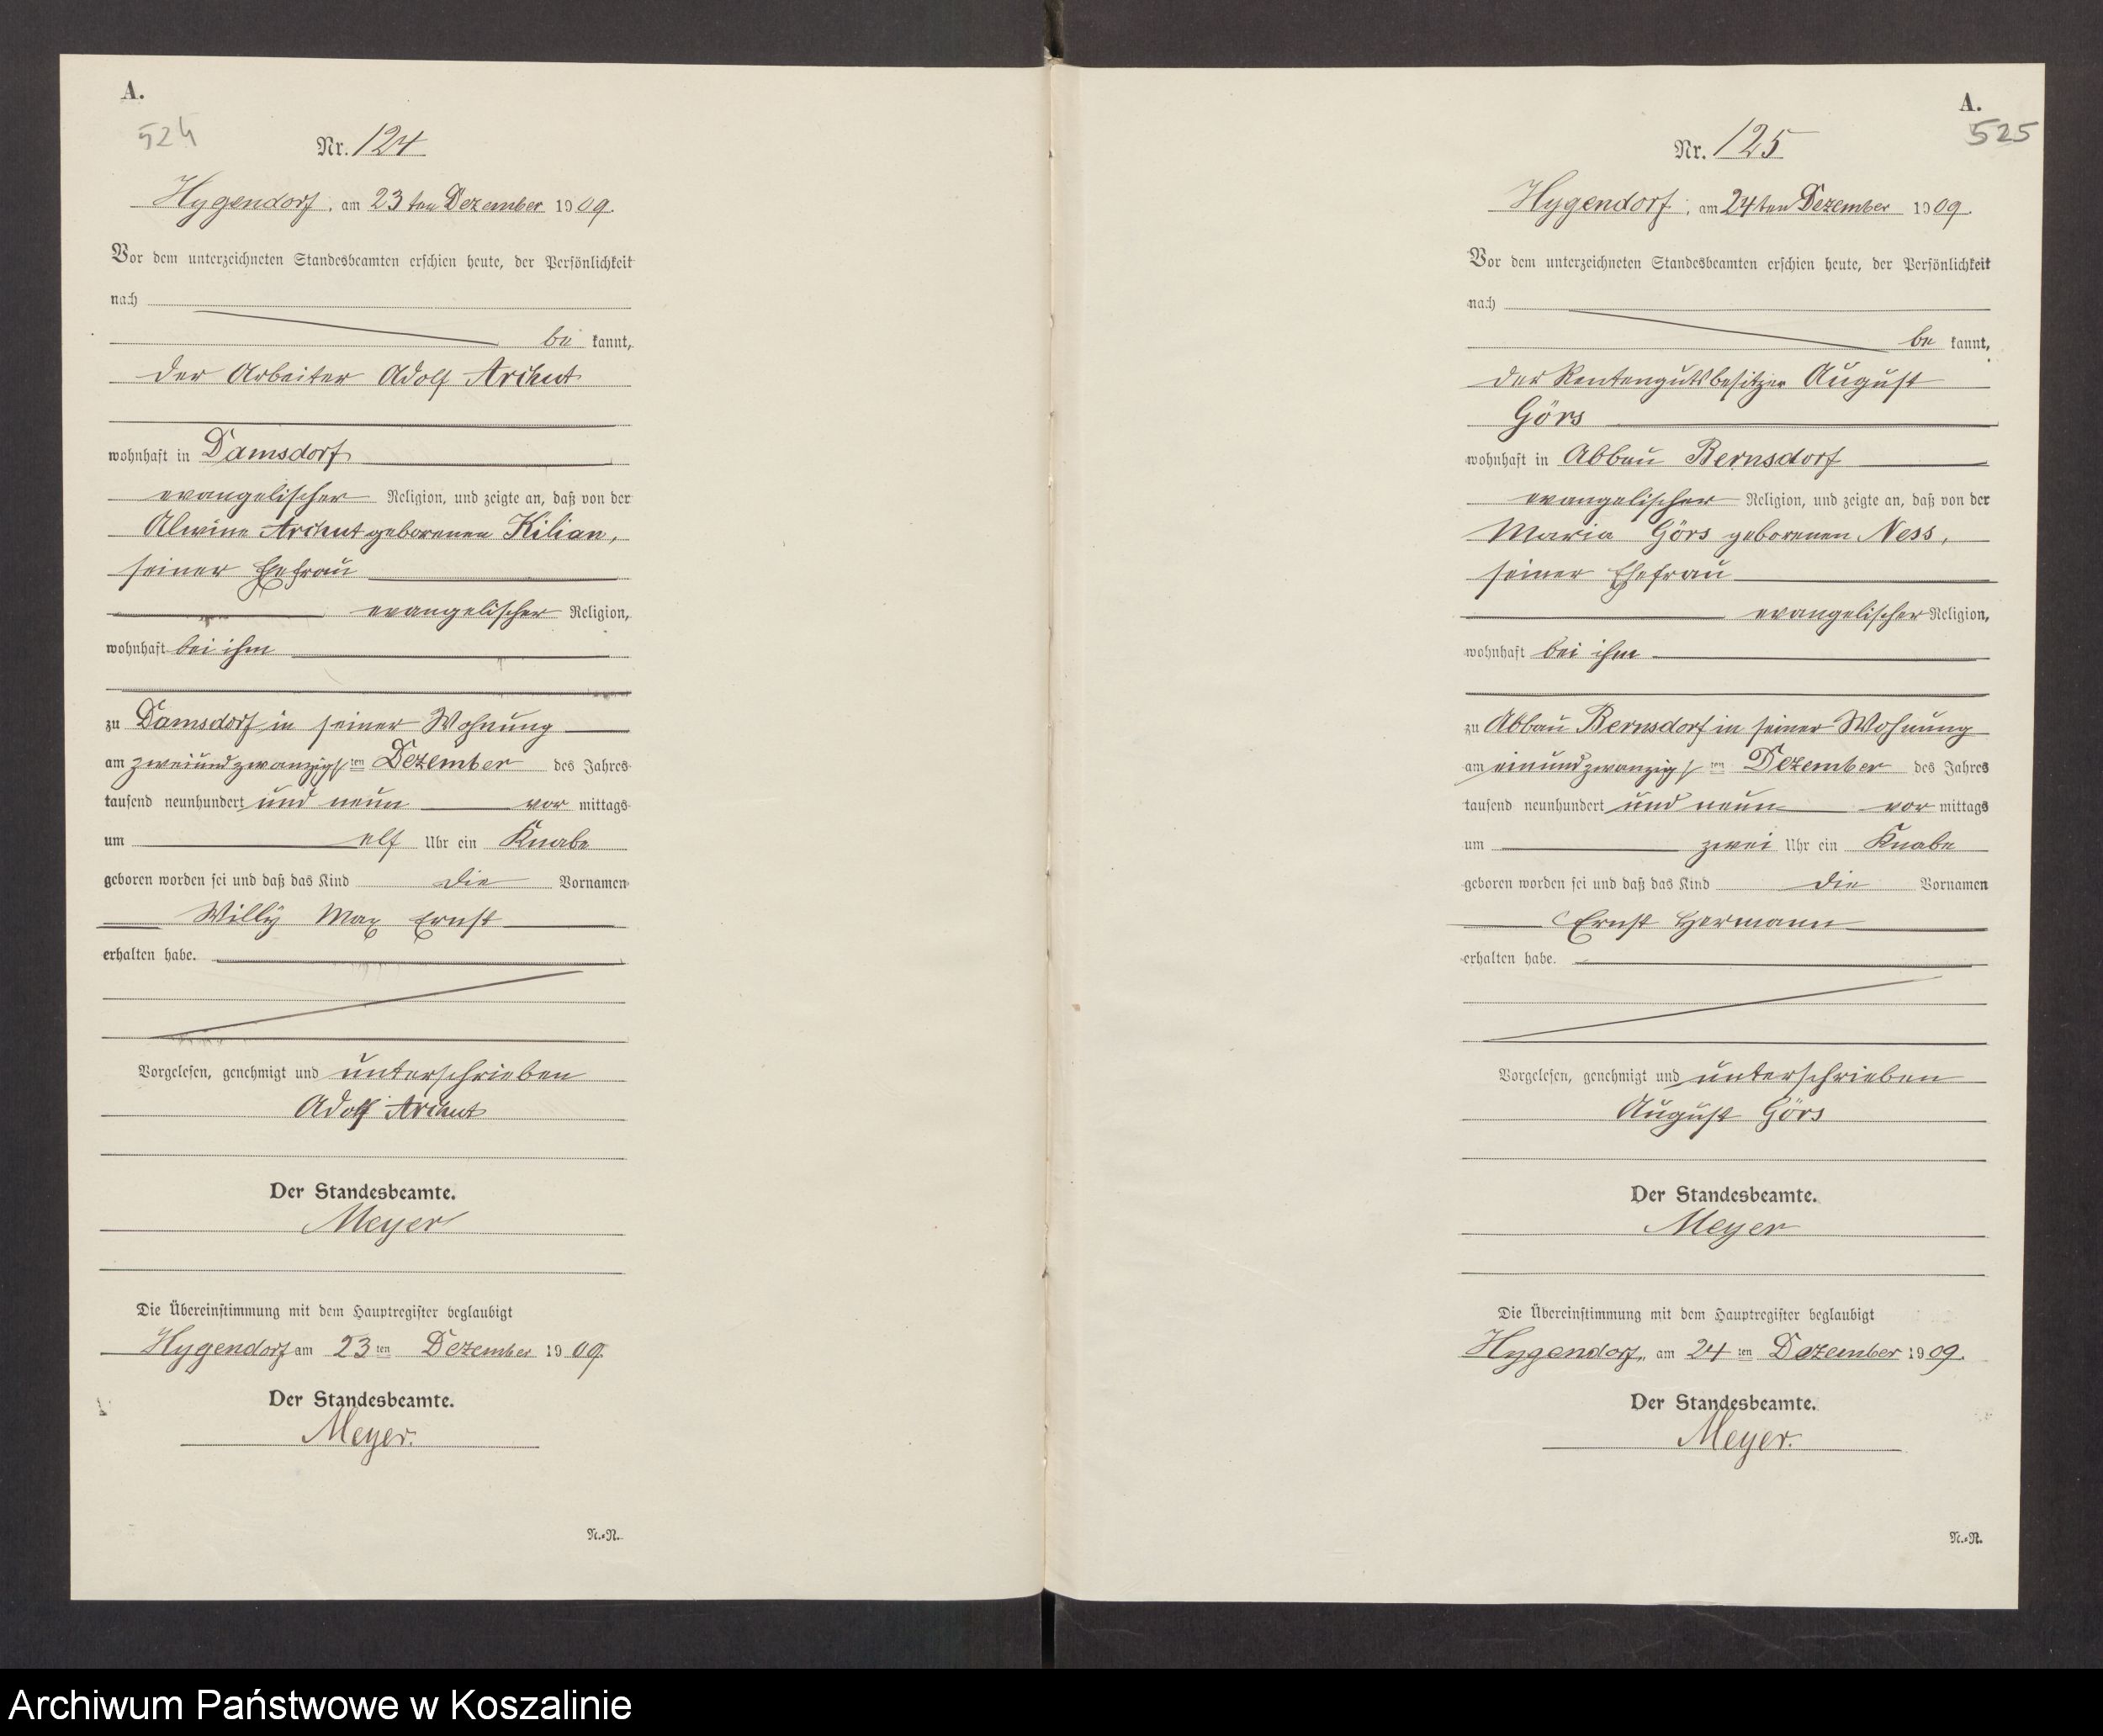 A.
524
Nr. 124
Hygendorf, am 23ten Dezember 1909.
Vor dem unterzeichneten Standesbeamten erschien heute, der Persönlichkeit
nach
be kannt,
der Arbeiter Adolf Archut
wohnhaft in Damsdorf
evangelischer Religion, und zeigte an, daß von der
Alwine Archut geborenen Kilian,
seiner Ehefrau
evangelischer Religion,
wohnhaft bei ihm
zu Damsdorf in seiner Wohnung
am zweiundzwanzigsten Dezember des Jahres
tausend neunhundert und neun vor mittags
um elf Uhr ein Knabe
geboren worden sei und daß das Kind die Vornamen
Willy Max Ernst
erhalten habe.
Vorgelesen, genehmigt und unterschrieben
Adolf Archut
Der Standesbeamte.
Meyer
Die Übereinstimmung mit dem Hauptregister beglaubigt
Hygendorf am 23ten Dezember 1909.
Der Standesbeamte.
Meyer.
N.=R.
A.
525
Nr. 125
Hygendorf, am 24ten Dezember 1909.
Vor dem unterzeichneten Standesbeamten erschien heute, der Persönlichkeit
nach
be kannt,
der Rentengutsbesitzer August
Görs
wohnhaft in Abbau Bernsdorf
evangelischer Religion, und zeigte an, daß von der
Maria Görs geborenen Ness,
seiner Ehefrau
evangelischer Religion,
wohnhaft bei ihm
zu Abbau Bernsdorf in seiner Wohnung
am einundzwanzigsten Dezember des Jahres
tausend neunhundert und neun vor mittags
um zwei Uhr ein Knabe
geboren worden sei und daß das Kind die Vornamen
Ernst Hermann
erhalten habe.
Vorgelesen, genehmigt und unterschrieben
August Görs
Der Standesbeamte.
Meyer
Die Übereinstimmung mit dem Hauptregister beglaubigt
Hygendorf, am 24ten Dezember 1909.
Der Standesbeamte.
Meyer.
N.=R.
Archiwum Państwowe w Koszalinie